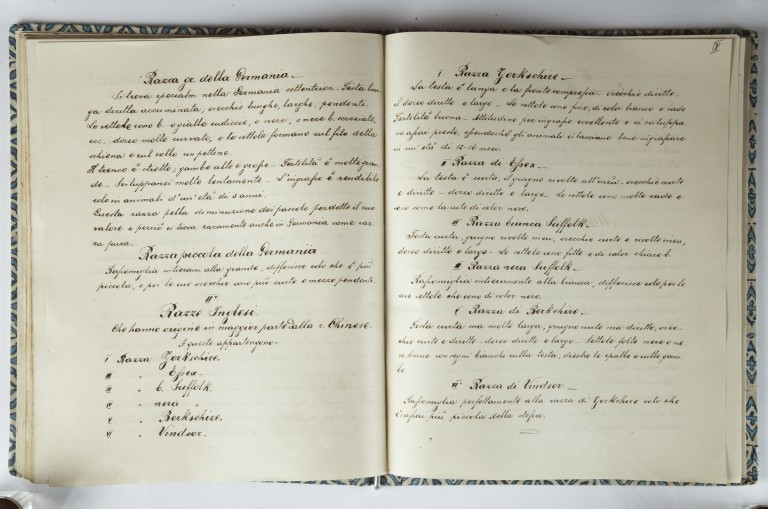 Razza gr. della Germania
Si trova specialm. nella Germania settentrion. - Testa lun-
ga diritta accuminata; orecchie lunghe, larghe, pendenti.
Le settole sono b. o giallo sudiccio, o nere, o nere b. rovesciate,
ecc. dorso molto curvato, e le settole formano sul filo della
schiena e sul collo un pettine.
Il tronco è stretto; gambe alte e grosse - Fertilità è molto gran-
de - Sviluppansi molto lentamente - L'ingrasso è renditibile
solo in animali d'un'età di 2 anni.
Questa razza pella diminuzione dei pascoli perdette il suo
valore e perciò si trova raramente anche in Germania come raz-
za pura.
Razza piccola della Germania
Rassomiglia intieram. alla grande, differisce solo che è più
piccola, e per le sue orecchie sono più curte e mezzo pendenti.
II
Razze Inglesi
Che hanno origine in maggior parte dalla r. Chinese.
A queste appartengono:
I Razza Yorkschire.
II " Essex -
III " b. Suffolk.
IV " nera "
V " Berkschire.
VI " Vindsor.
I Razza Yorkschire -
La testa è lunga e la fronte compressa - orecchie diritte -
Il dorso diritto e largo - Le settole sono fine, di color bianco e rade
Fertilità buona - Attitudine per ingrasso eccellente e si sviluppa-
no assai presto, essendochè gli animali si lasciano bene ingrassare
in un'età di 12-16 mesi.
II Razza de Essex -
La testa è curta, il grugno rivolto all'insù - orecchie curte
e diritte - dorso diritto e largo - Le settole sono molto rade e
nere come la cute di color nero.
III Razza bianca Suffolk -
Testa curta, grugno rivolto insu, orecchie curte e rivolte insu,
dorso diritto e largo - Le settole sono fitte e de color chiaro b.
IIII Razza nera Suffolk -
Rassomiglia intieramente alla bianca, differisce solo per lo
sue settole che sono di color nero.
V Razza de Berkschire -
Testa curta ma molto larga, grugno curto ma diritto, orec-
chie curte e diritte - dorso diritto e largo - Settole folte nere o ne-
re brune con segni bianchi sulla testa, dietro le spalle e sulle gam-
be
VI Razza di Vindsor -
Rassomiglia perfettamente alla razza di Yorkschire solo che
è assai più piccola della stessa.